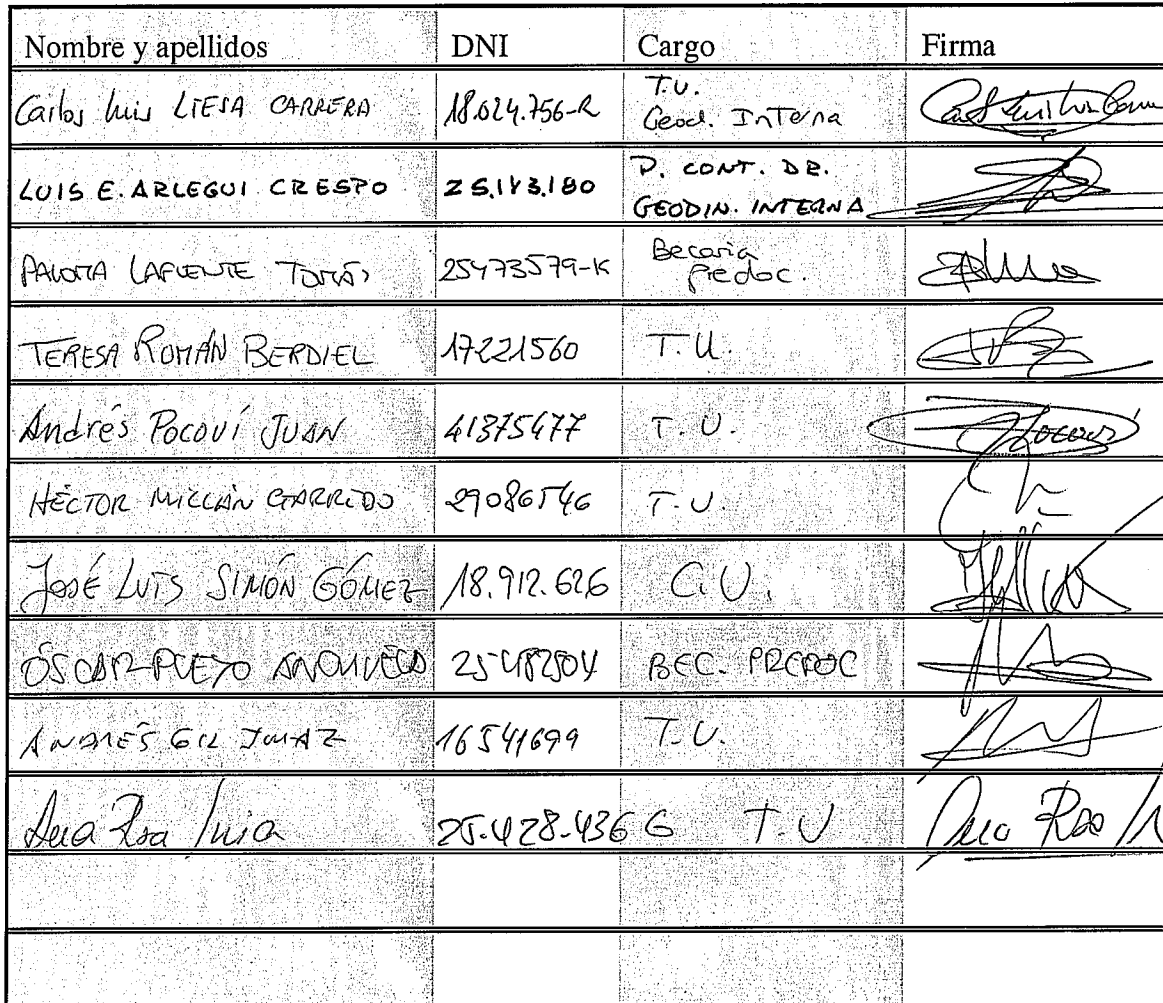 Nombre y apellidos DNI Cargo Firma
Carlos Luis LIESA CARRERA 18.024.756-R T.U.
Geod. Interna
LUIS E. ARLEGUI CRESPO 25.143.180 P. CONT. DR.
GEODIN. INTERNA
PALOMA LAFUENTE TOMÁS 25473579-K Becaria
Predoc.
TERESA ROMÁN BERDIEL 17221560 T.U.
Andrés Pocoví JUAN 41375477 T.U.
HÉCTOR MILLÁN GARRIDO 29086546 T.U.
JOSÉ LUIS SIMÓN GÓMEZ 18.912.626 C.U.
ÓSCAR PUEYO ANCHUELA 25482504 BEC. PREDOC
ANDRÉS GIL IMAZ 16541699 T.U.
Ana Rosa 25.428.436 G T.U